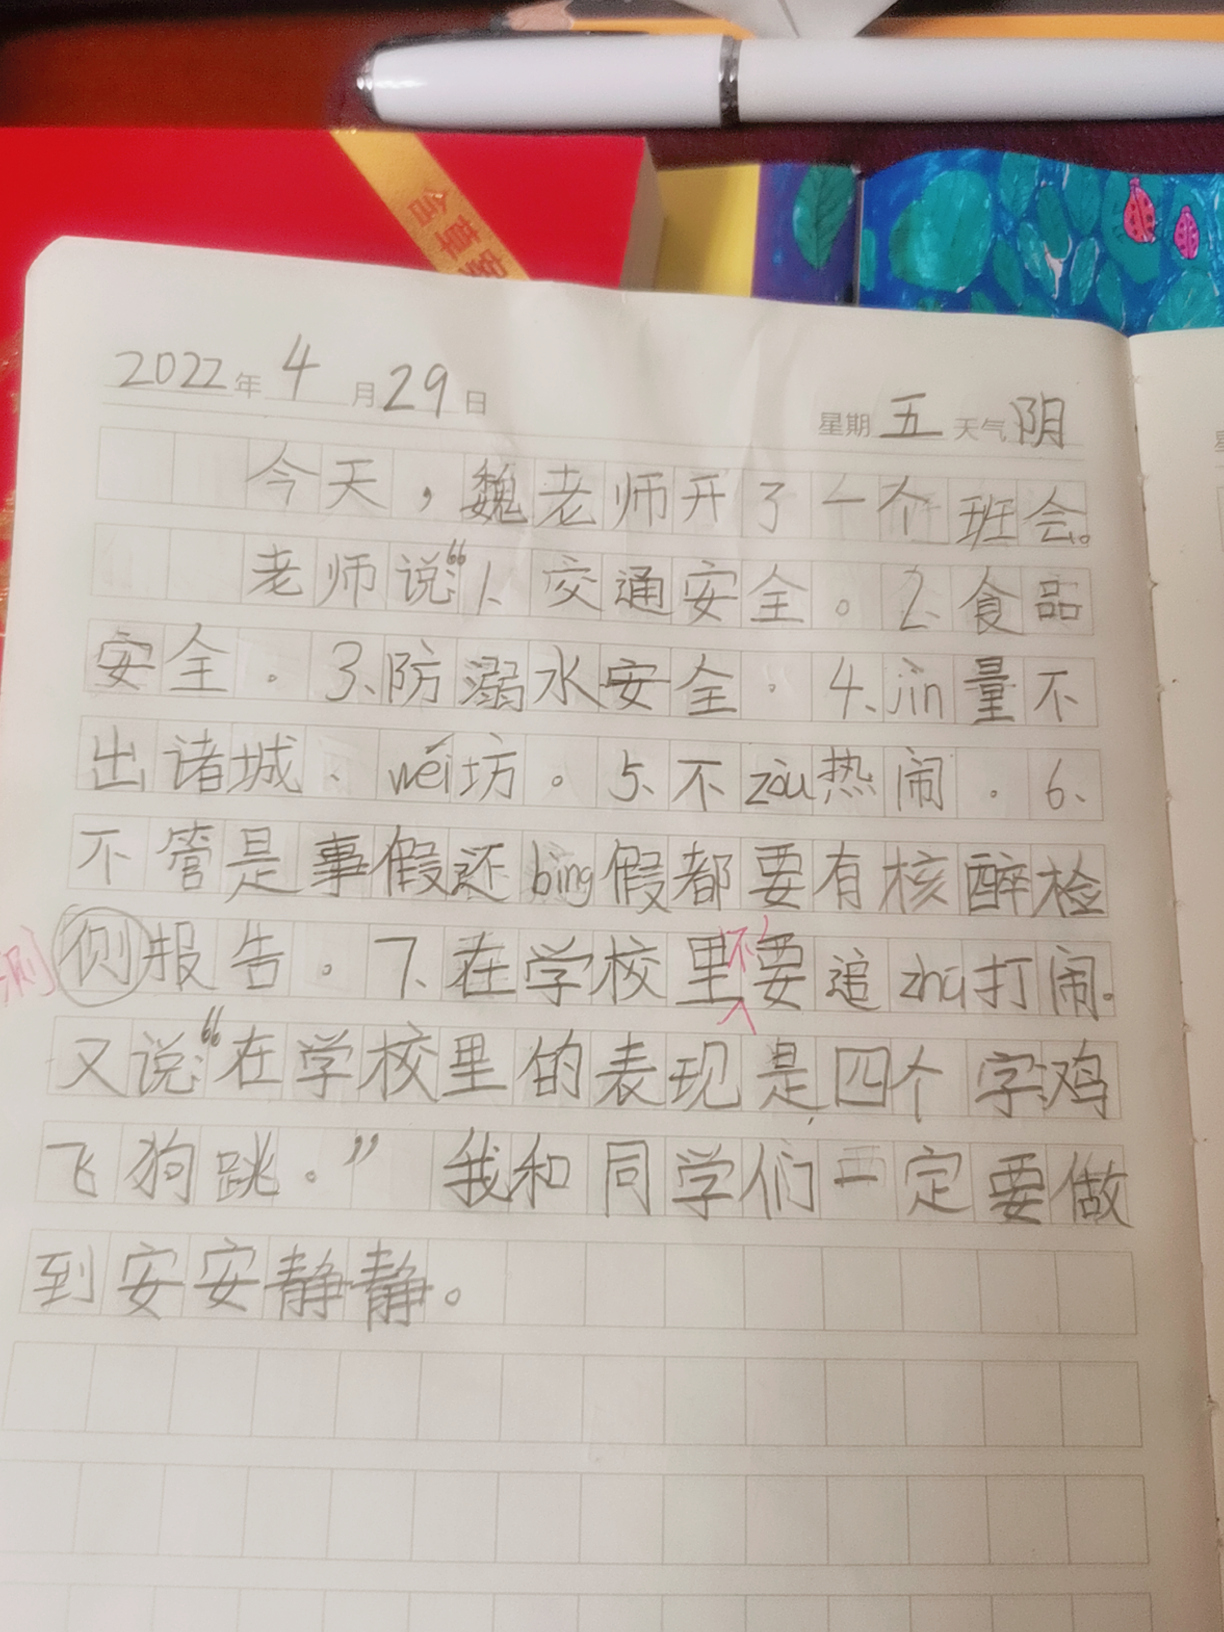 2022年4月29日 星期五天气阴
今天，魏老师开了一个班会。
老师说：“1、交通安全。2、食品
安全。3、防溺水安全。4、jǐn量不
出诸城、wéi坊。5、不zòu热闹。6、
不管是事假还bìng假都要有核醉检
测
侧报告。7、在学校里不要追zhú打闹.
又说：“在学校里的表现是四个字：鸡
飞狗跳。”我和同学们一定要做
到安安静静。